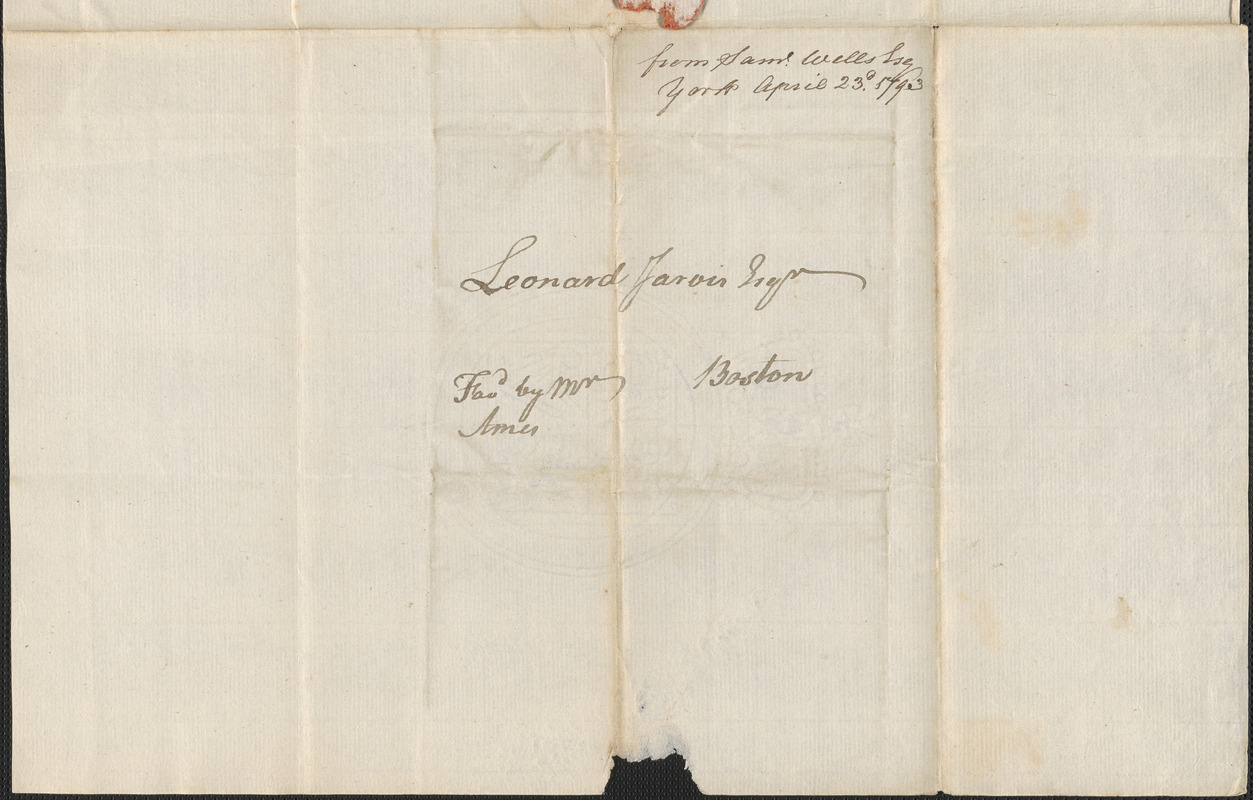 from Saml. Wells Esq
York April 23d. 1793
Leonard Jarvis Esqr
Boston
Favd by Mr
Ames